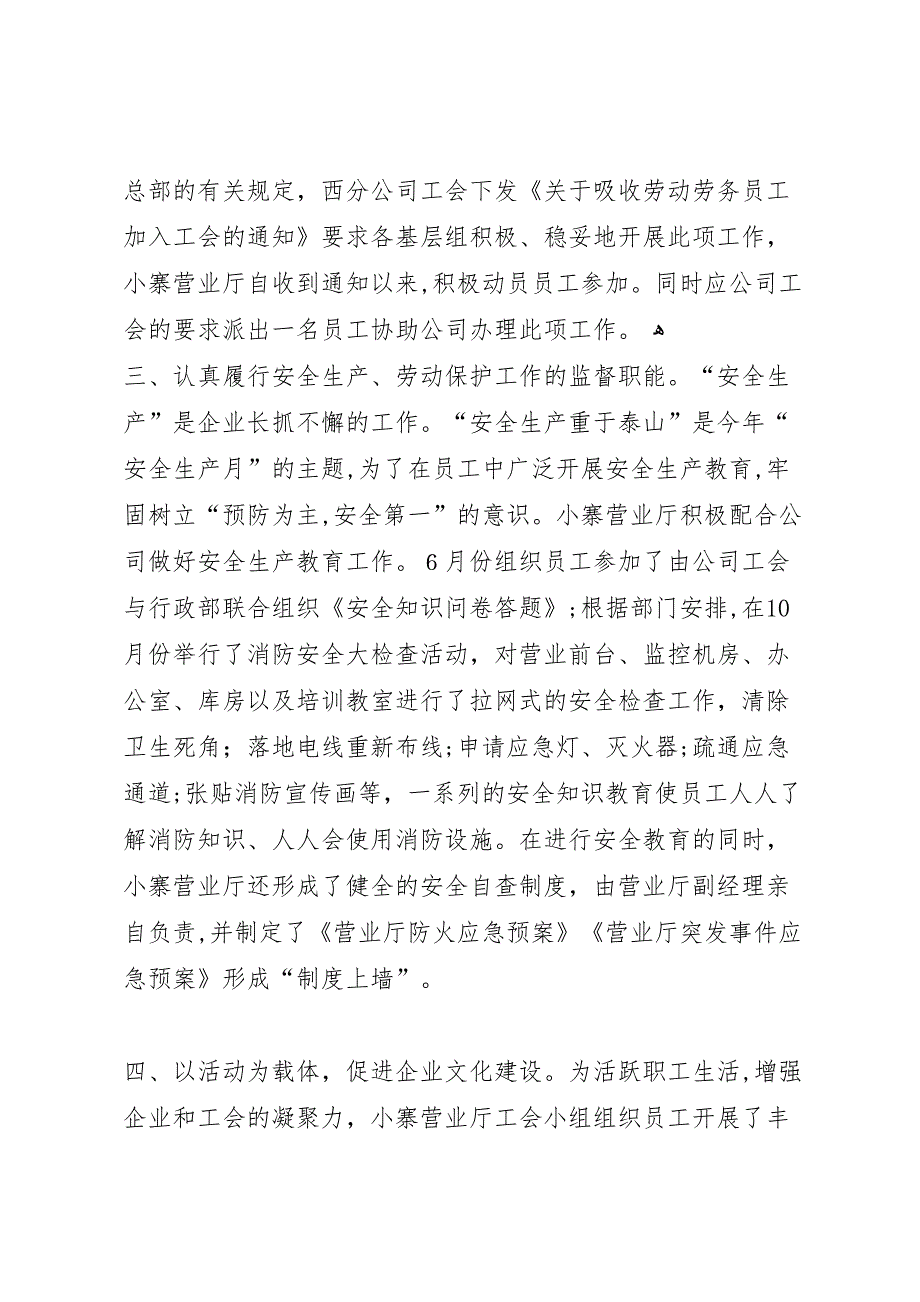 总部的有关规定，西分公司工会下发《关于吸收劳动劳务员工
加入工会的通知》要求各基层组积极、稳妥地开展此项工作，
小寨营业厅自收到通知以来,积极动员员工参加。同时应公司工
会的要求派出一名员工协助公司办理此项工作。 ﻫ
三、认真履行安全生产、劳动保护工作的监督职能。“安全生
产”是企业长抓不懈的工作。“安全生产重于泰山”是今年“
安全生产月”的主题,为了在员工中广泛开展安全生产教育,牢
固树立“预防为主,安全第一”的意识。小寨营业厅积极配合公
司做好安全生产教育工作。6月份组织员工参加了由公司工会
与行政部联合组织《安全知识问卷答题》;根据部门安排,在10
月份举行了消防安全大检查活动，对营业前台、监控机房、办
公室、库房以及培训教室进行了拉网式的安全检查工作，清除
卫生死角；落地电线重新布线;申请应急灯、灭火器;疏通应急
通道;张贴消防宣传画等，一系列的安全知识教育使员工人人了
解消防知识、人人会使用消防设施。在进行安全教育的同时，
小寨营业厅还形成了健全的安全自查制度，由营业厅副经理亲
自负责,并制定了《营业厅防火应急预案》《营业厅突发事件应
急预案》形成“制度上墙”。
四、以活动为载体，促进企业文化建设。为活跃职工生活,增强
企业和工会的凝聚力，小寨营业厅工会小组组织员工开展了丰